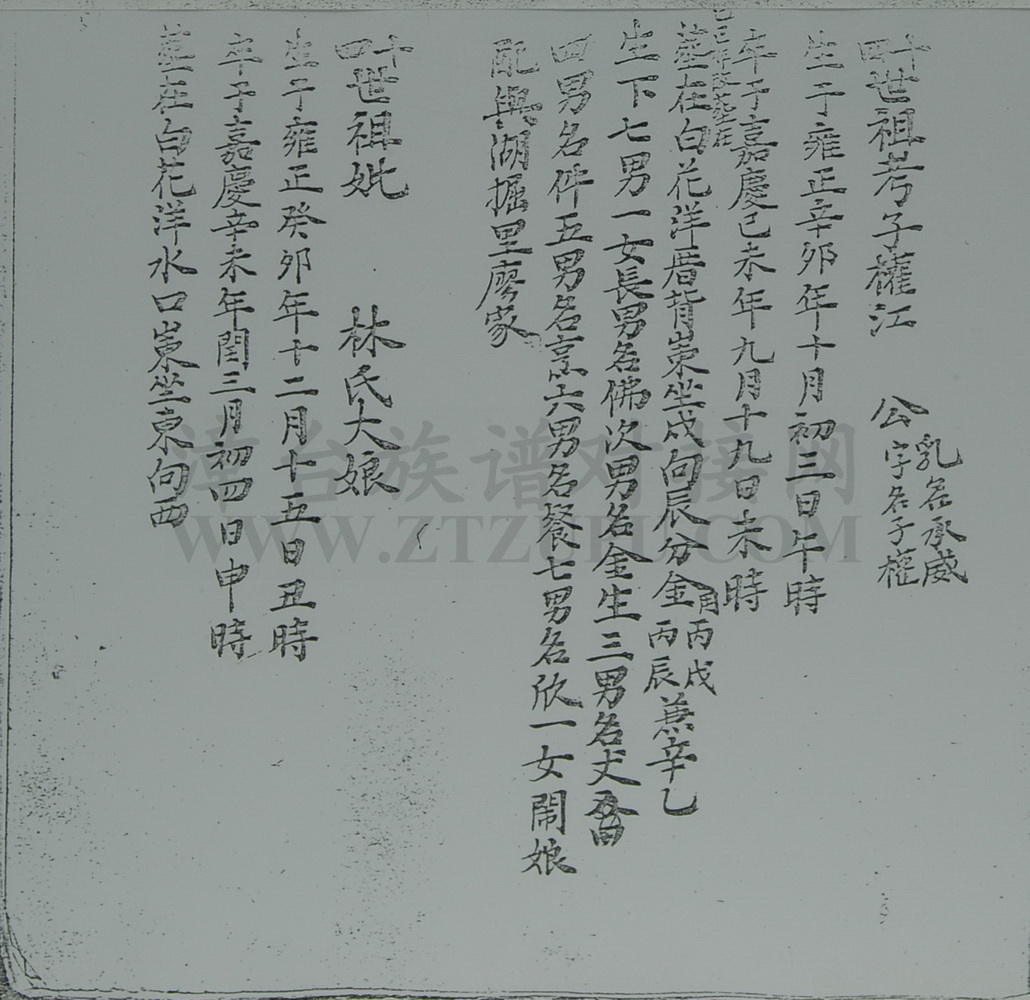 十四世祖考子權江 公 乳名承威 字名子權
生于雍正辛卯年十月初三日午時
卒于嘉慶己未年九月十九日未時
葬在白花洋厝背崬坐戌向辰分金用丙戌丙辰兼辛乙
生下七男一女長男名佛次男名金生三男名丈
四男名件五男名烹六男名餐七男名欣一女鬧娘
配與湖掘里廖家
十四世祖妣 林氏大娘
生于雍正癸卯年十二月十五日丑時
卒于嘉慶辛未年閏三月初四日申時
葬在白花洋水口崬坐東向西
漳台族谱对接网
WWW.ZTZUPU.COM